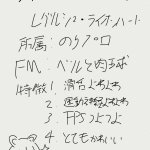 レグルシュ・ライオンハート
所属:のりプロ
FM:ベルと肉球
特徴1.滑舌よわよわ
2.運動神経よわよわ
3.FPSつよつよ
4.とてもかわいい